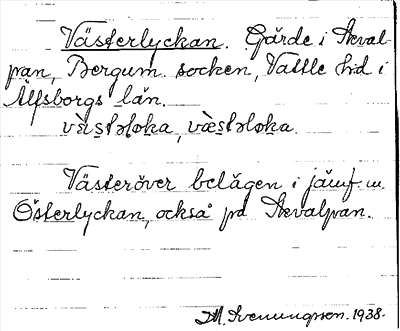 Västerlyckan. Gärde i Steval-
pan, Bergum socken, Vättle hd i
Älfsborgs län.
vɛ̀stəḷøka, væ̀stəḷøka
Västeröver belägen i jämf. m.
Österlyckan, också på Stevalpan.
M. Svenungsson. 1938.